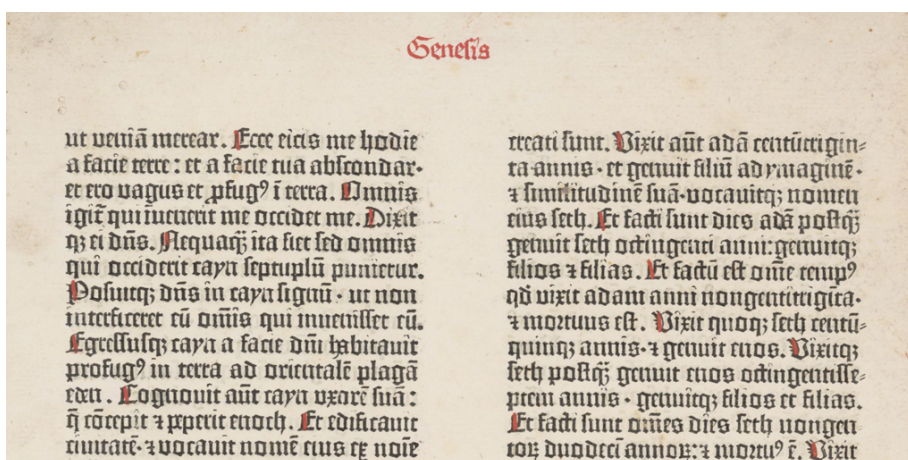 Genesis
ut veniā merear. Ecce eicis me hodie
a facie terre: et a facie tua abscondar·
et ero vagus et ꝓfugꝰ ī terra. Omnis
igit̄ qui invenerit me occidet me. Dixit
qꝫ ei dn̄s. Nequaqȝ̄ ita fiet sed omnis
qui occiderit cayn septuplū punietur.
Posuitqꝫ dn̄s in cayn signū· ut non
interficeret eū om̄is qui invenisset eū.
Egressusqꝫ cayn a facie dn̄i habitavit
profugꝰ in terra ad orientalē plagā
eden. Cognouit aūt cayn vxorē suā:
q̄ cōcepit ⁊ peperit enoch. Et edificavit
civitatē· ⁊ vocavit nomē eius ex noīe
creati sunt. Vixit aūt adā centūtrigin⸗
ta annis· et genuit filiū ad ymaginē·
⁊ similitudinē suā· vocavitqꝫ nomen
eius seth. Et facti sunt dies adā postqȝ̄
genuit seth octingenti anni: genuitqꝫ
filios ⁊ filias. Et factū est om̄e tempꝰ
qd̄ vixit adam anni nongentitrigīta·
⁊ mortuus est. Vixit quoqꝫ seth centū⸗
quinqꝫ annis· ⁊ genuit enos. Vixitqꝫ
seth postqȝ̄ genuit enos octingentisse⸗
ptem annis· genuitqꝫ filios et filias.
Et facti sunt om̄es dies seth nongen
toꝝ duodecī annoꝝ: ⁊ mortuꝰ ē. Vixit